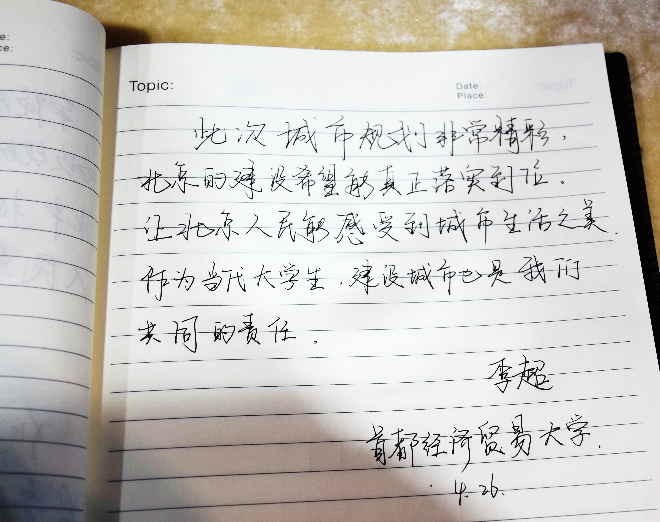 Topic:
Date:
Place:
此次城市规划非常精彩,
北京的建设希望能真正落实到位。
让北京人民能感受到城市生活之美.
作为当代大学生,建设城市也是我们
共同的责任.
李超
首都经济贸易大学.
4.26.